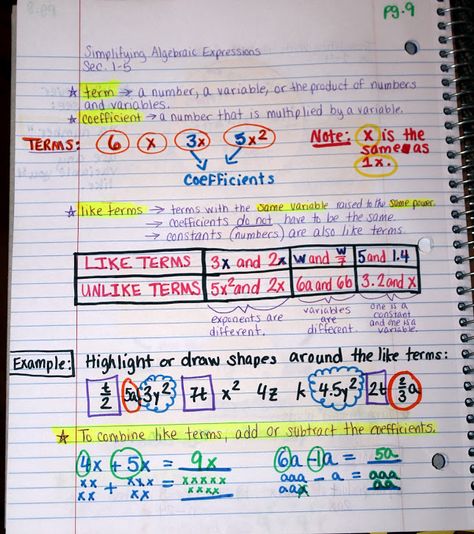 pg.9
Simplifying Algebraic Expressions
Sec. 1-5
★ term → a number, a variable, or the product of numbers
and variables.
★ coefficient → a number that is multiplied by a variable.
TERMS: 6 x 3x 5x²
Note: x is the
same as
1x.
Coefficients
★ like terms → terms with the same variable raised to the same power.
→ coefficients do not have to be the same.
→ constants (numbers) are also like terms.
LIKE TERMS 3x and 2x w and w/7 5 and 1.4
UNLIKE TERMS 5x² and 2x 6a and 6b 3.2 and x
exponents are
different.
variables
are
different.
one is a
constant
and one is a
variable.
Example: Highlight or draw shapes around the like terms:
t/2 5a 3y² 7t x² 4z k 4.5y² 2t 2/3a
★ To combine like terms, add or subtract the coefficients.
4x + 5x = 9x 6a - 1a = 5a
xx + xxx = xxxxx aaa - a = aaa
xx xx xxxx aax aa